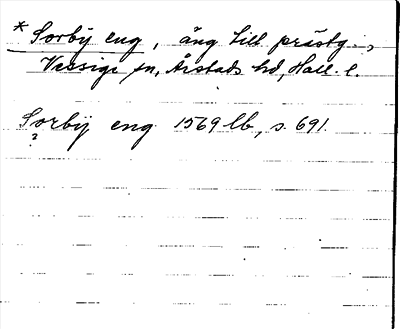 * Sorby eng, äng till prästg.,
Vessige sn, Årstads hd, Hall. l.
Sorbÿ eng 1569 lb, s. 691.
?